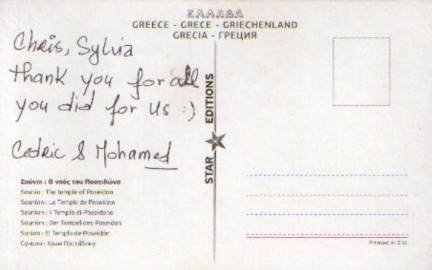 ΕΛΛΑΔΑ
GREECE - GRECE - GRIECHENLAND
GRECIA - ГРЕЦИЯ
Chris, Sylvia
thank you for all
you did for us :)
Cedric & Mohamed
STAR ★ EDITIONS
Σούνιο : Ο ναός του Ποσειδώνα
Sounio : The temple of Poseidon
Sounion : Le Temple de Poseidon
Sounion : Il Tempio di Poseidone
Sounion : Der Tempel des Poseidon
Sunion : El Templo de Poseidón
Сунион : Храм Посейдону
Printed in E.U.